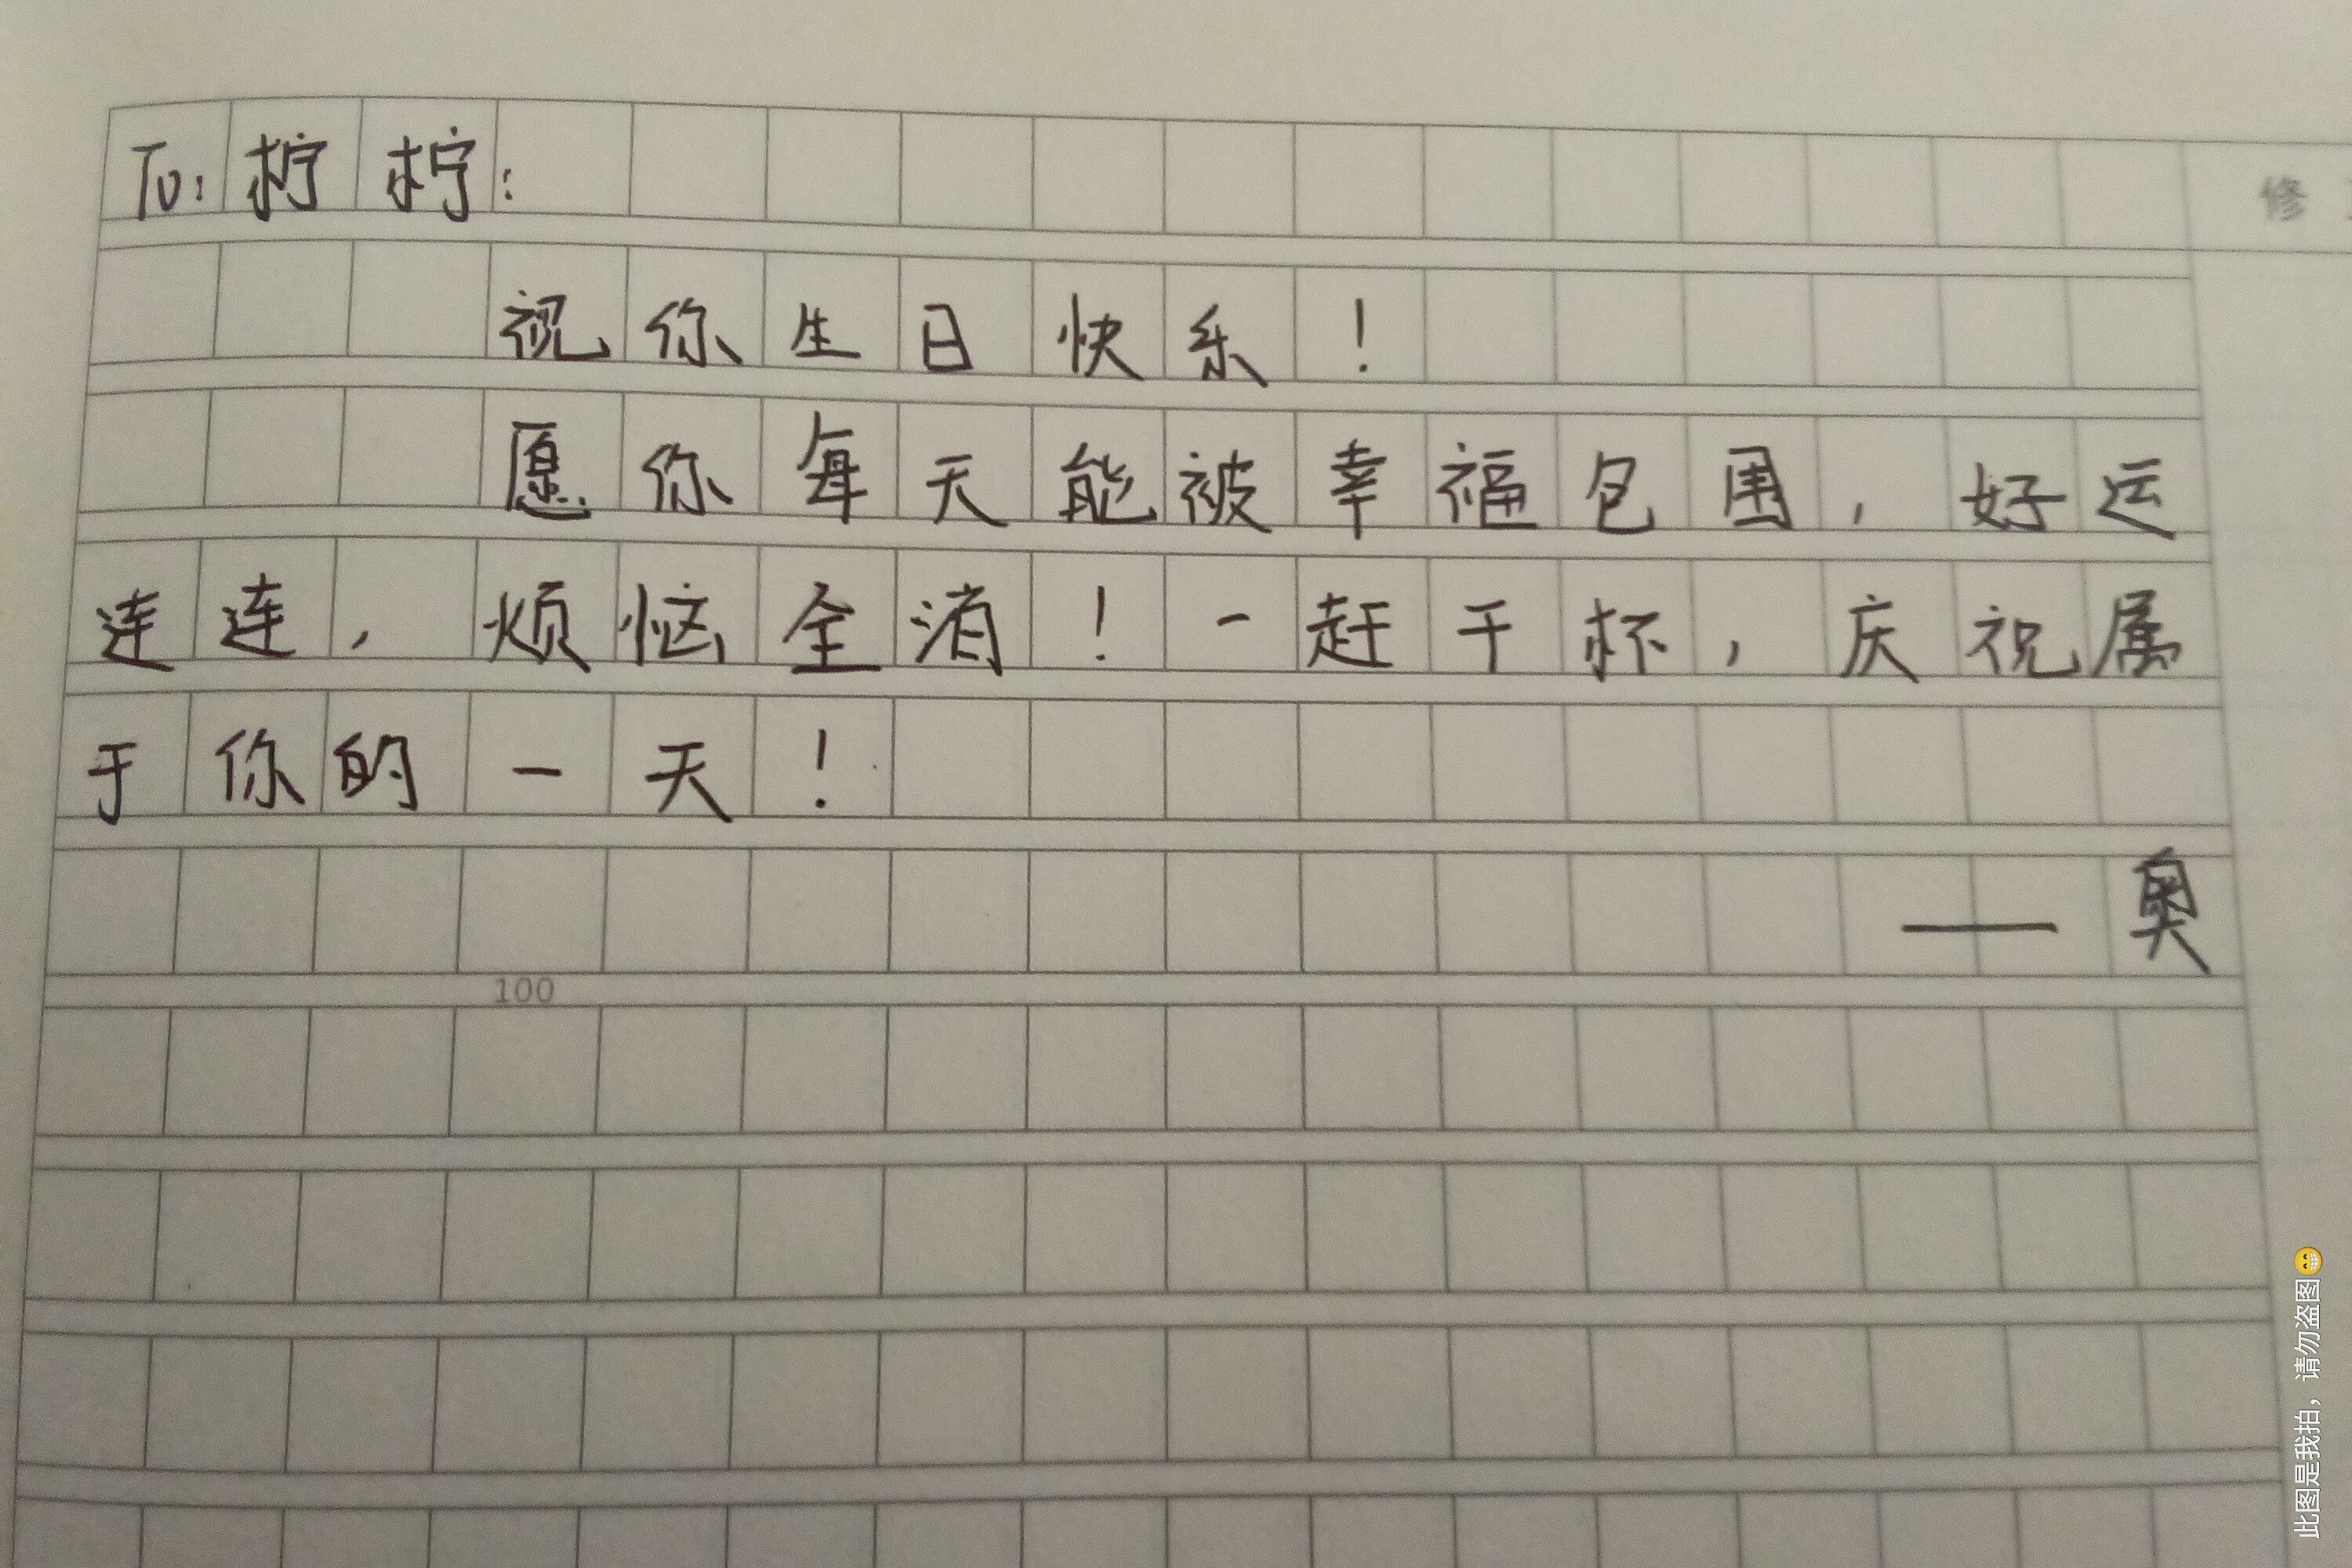 To:柠柠:
祝你生日快乐!
愿你每天能被幸福包围,好运
连连,烦恼全消!一赶干杯,庆祝属
于你的一天!
——奥
100
修
此图是我拍,请勿盗图😁